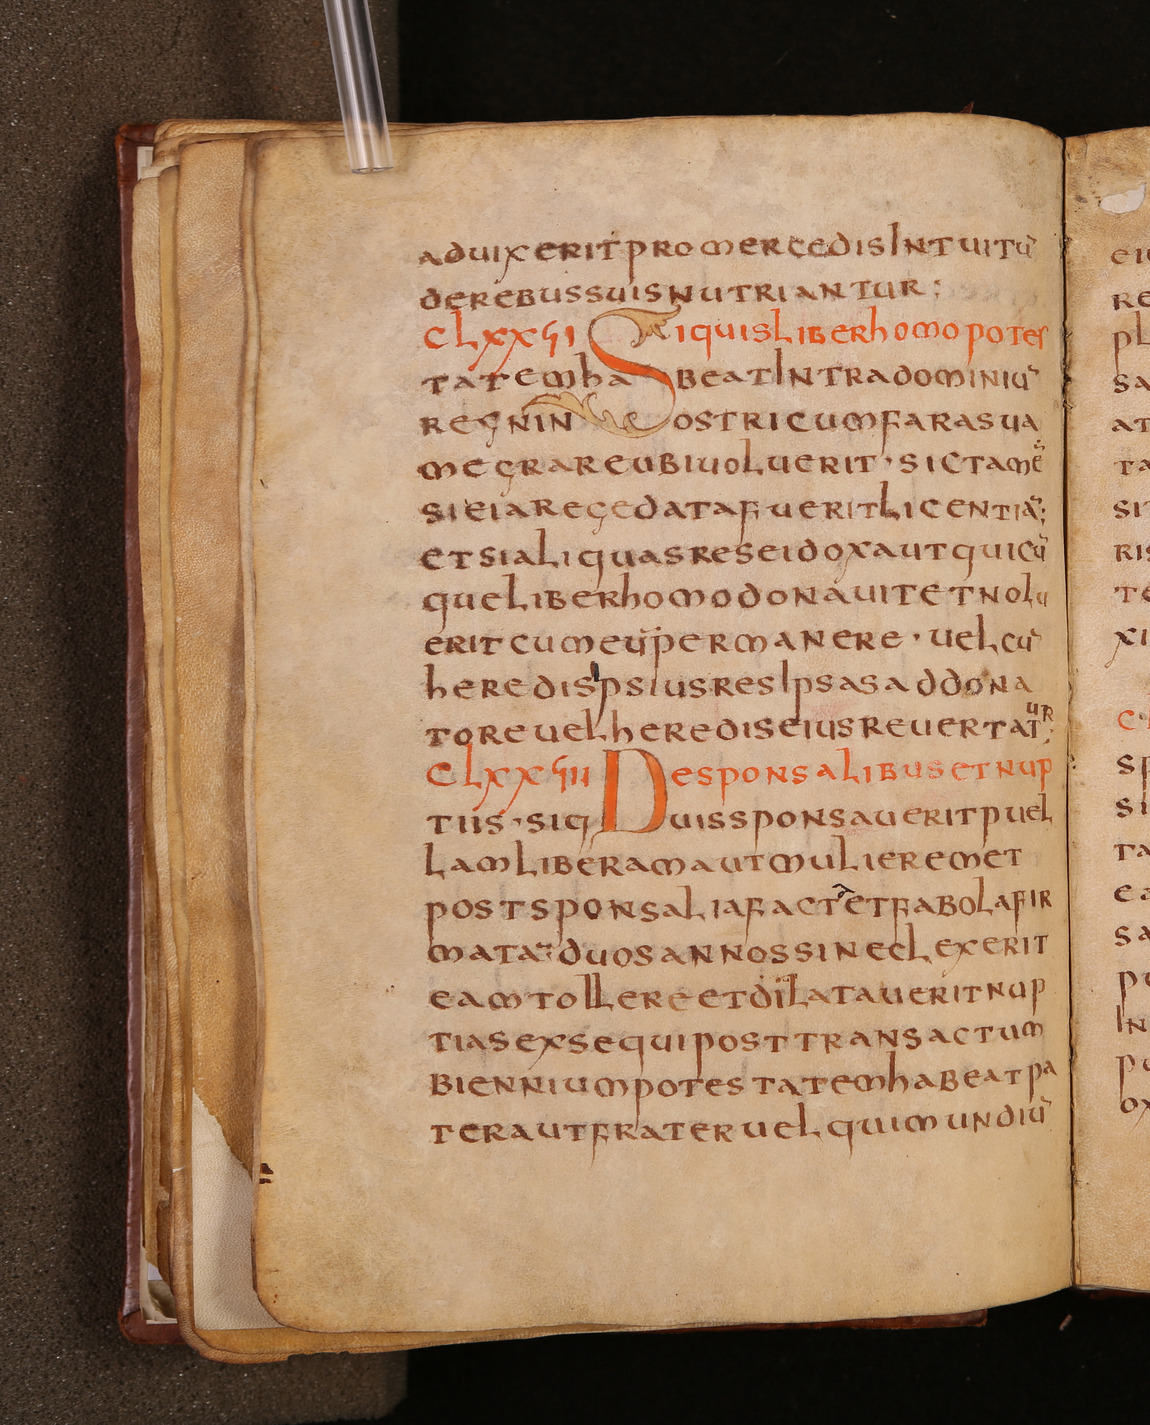 aduixerit pro mercedis intuitū
de rebus suis nutriantur;
CLXXVI Si quis liber homo potes
tatem habeat intra dominiū
regni nostri cum fara sua
megrare ubi uoluerit · sic tamē
si ei a rege data fuerit licentia;
et si aliquas res ei dox aut quicū
que liber homo donauit et nolu
erit cum eū permanere · uel cū
heredis ipsius res ipsas ad dona
tore uel heredis eius reuertatur;
CLXXVIII De sponsalibus et nup
tiis · Si quis sponsauerit puel
lam liberam aut mulierem et
post sponsalia facta et fabola fir
mata duos annos sineclexerit
eam tollere et dilatauerit nup
tias exsequi post transactum
biennium potestatem habeat pa
ter aut frater uel qui mundiū